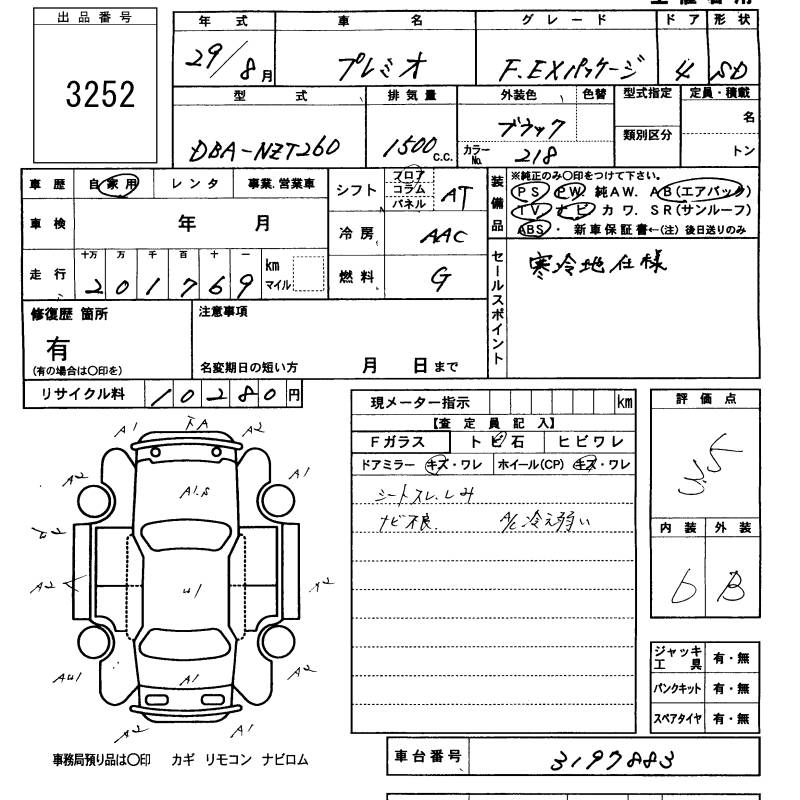 出品番号
3252
年式 車名 グレード ドア 形状
29/8月 プレミオ F.EXパッケージ 4 SD
型式 排気量 外装色 色替 型式指定 定員・積載
DBA-NZT260 1500c.c. ブラック 類別区分 名
カラーNo. 218 トン
車歴 自家用 レンタ 事業.営業車
車検 年 月
走行 十万 万 千 百 十 一 km マイル
201769
シフト フロア コラム パネル AT
冷房 AAC
燃料 G
装備品
※純正のみ〇印をつけて下さい。
PS PW 純AW. AB(エアバック)
TV ナビ カワ. SR(サンルーフ)
ABS・新車保証書←(注)後日送りのみ
セールスポイント
寒冷地仕様
修復歴 箇所
有
(有の場合は〇印を)
注意事項
名変期日の短い方 月 日まで
リサイクル料 10280円
現メーター指示 km
【査定員記入】
Fガラス トビ石 ヒビワレ
ドアミラー キズ・ワレ ホイール(CP) キズ・ワレ
シートスレ.しみ
ナビ不良. A/C冷え弱い
評価点
3.5
内装 外装
B
A1 下A A2
A2 A1.5 A1
A2
A2 U1
A1 A2
A2 A1
事務局預り品は〇印 カギ リモコン ナビロム
ジャッキ工具 有・無
パンクキット 有・無
スペアタイヤ 有・無
車台番号 3197883